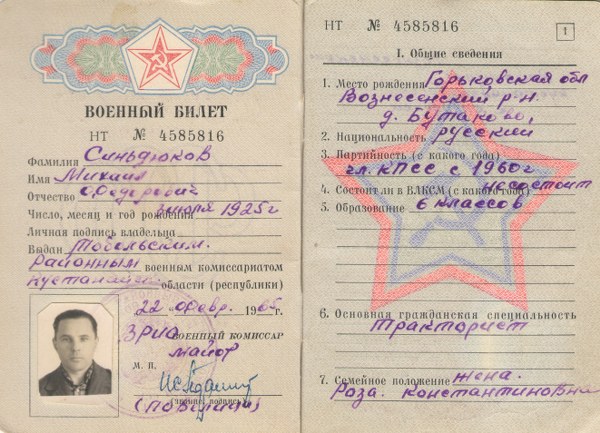 ВОЕННЫЙ БИЛЕТ
НТ № 4585816
Фамилия Синьдюков
Имя Михаил
Отчество Федорович
Число, месяц и год рождения июля 1925 г
Личная подпись владельца
Выдан Тобольским
районным военным комиссариатом
области (республики)
22 февр. 1965 г.
ВРИО ВОЕННЫЙ КОМИССАР
майор
М. П.
НТ № 4585816
1
I. Общие сведения
1. Место рождения Горьковская обл
Вознесенский р-н.
д. Бутаково,
2. Национальность русский
3. Партийность (с какого года)
чл. КПСС с 1960 г
4. Состоял ли в ВЛКСМ (с какого года) несостоит
5. Образование 6 классов
6. Основная гражданская специальность
Тракторист
7. Семейное положение жена.
Роза. Константиновна